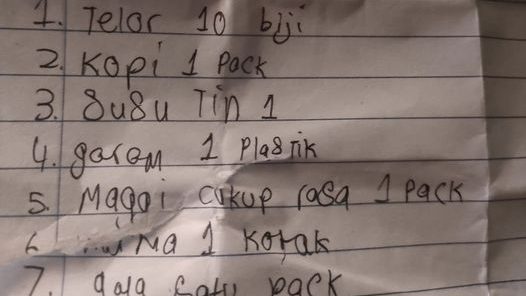 1. Telor 10 biji
2. Kopi 1 Pack
3. SuSu Tin 1
4. garam 1 PlaStik
5. Maggi cukup rasa 1 Pack
6 Ma 1 Kotak
7. Satu pack